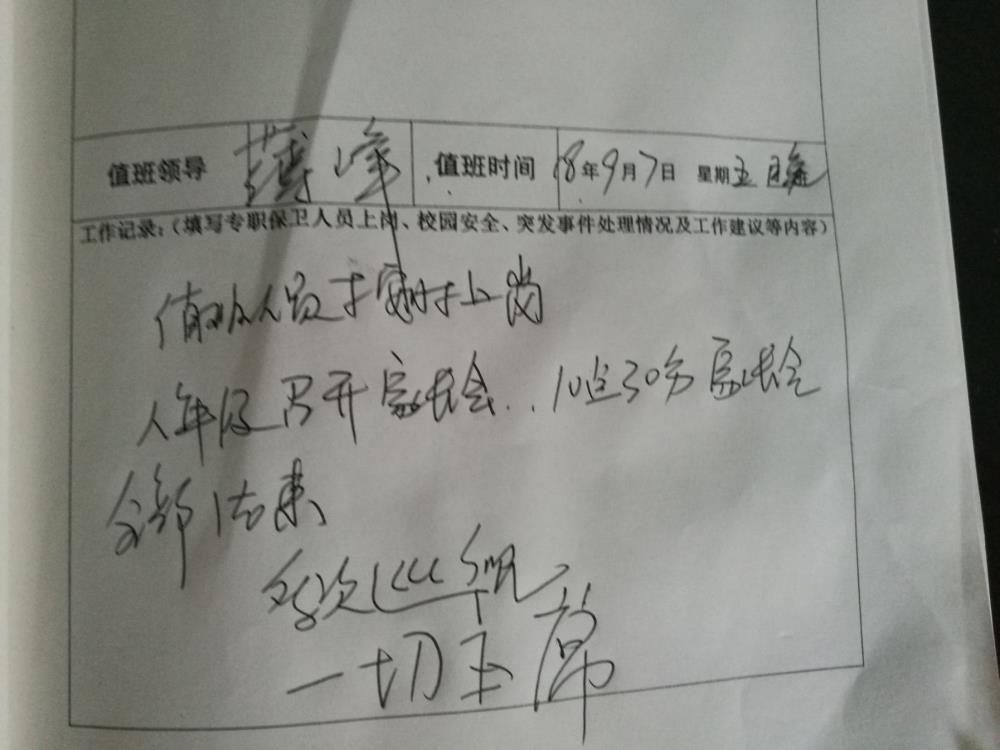 值班领导 峰 值班时间 18年9月7日 星期五 日晚
工作记录：（填写专职保卫人员上岗、校园安全、突发事件处理情况及工作建议等内容）
值班人员按时上岗
八年级召开家长会..10点30分家长会
全部结束
多次巡视
一切正常